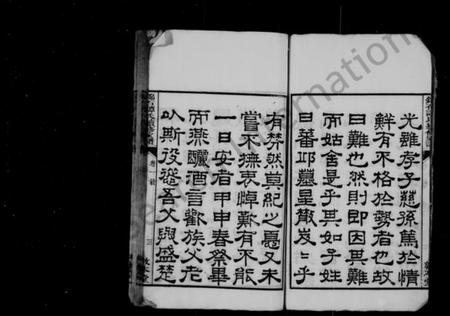 光雖孝子慈孫篤於情
鮮有不格於勢者也故
曰難也然則即因其難
而姑舍是乎其如子姓
日蕃邱墓星散何乎
有棼然莫紀之憂又未
嘗不撫衷悼難有不能
一日安者甲申春祭畢
而燕釃酒言歡族父老
以斯役從吾父與盛楚
卷一
三
敦本堂